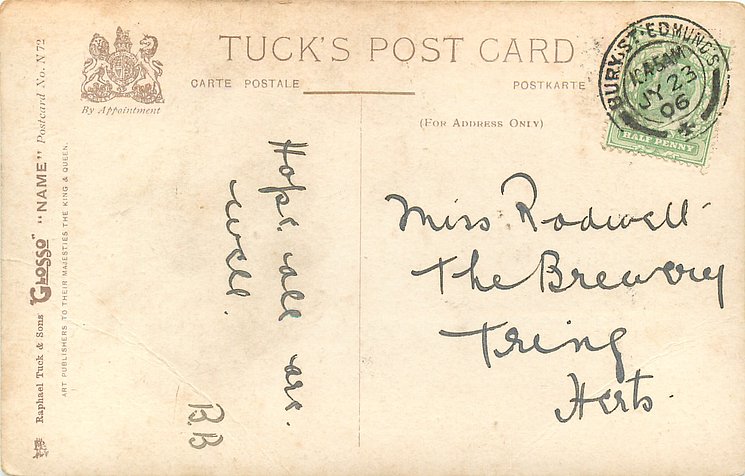 TUCK'S POST CARD
CARTE POSTALE
POSTKARTE
(FOR ADDRESS ONLY)
By Appointment
Raphael Tuck & Sons "GLOSSO" "NAME" Postcard No. N 72
ART PUBLISHERS TO THEIR MAJESTIES THE KING & QUEEN.
Hope all are
well.
B.B
BURY ST EDMUNDS
JY 23
06
HALF PENNY
Miss Rodwell
The Brewery
Tring
Herts.